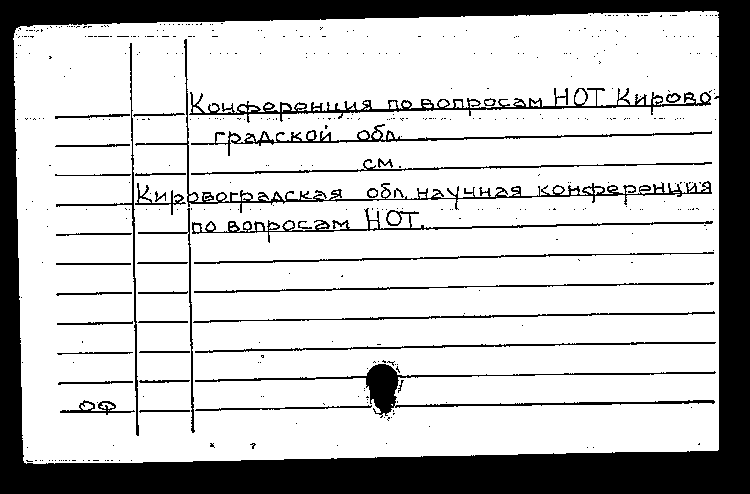 Конференция по вопросам НОТ Кирово-
градской обл.
см.
Кировоградская обл. научная конференция
по вопросам НОТ.
ОФ